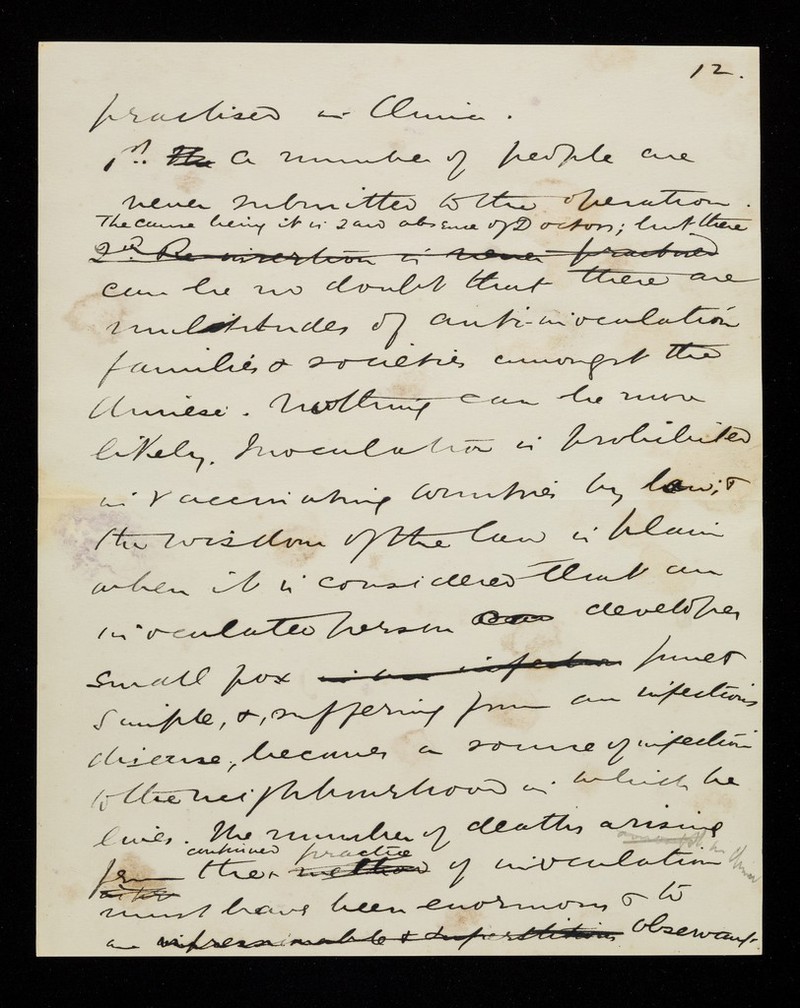 12.
practised in China.
1st. The A number of people are
never submitted to the operation.
The cause being it is said absence of Doctors; but there
2nd. Re-insertion is never practised
can be no doubt that there are
multitudes of anti-inoculation
families & societies amongst the
Chinese. Nothing can be more
likely. Inoculation is prohibited
in vaccinating countries by law; &
the wisdom of the law is plain
when it is considered that an
inoculated person can developes
small pox in an infectious pure &
simple, &, suffering from an infectious
disease, becomes a source of infection
to the neighbourhood in which he
lives. The number of deaths arising
continued practice
from the method of inoculation
must have been enormous & to
an impressionable & superstitious observant